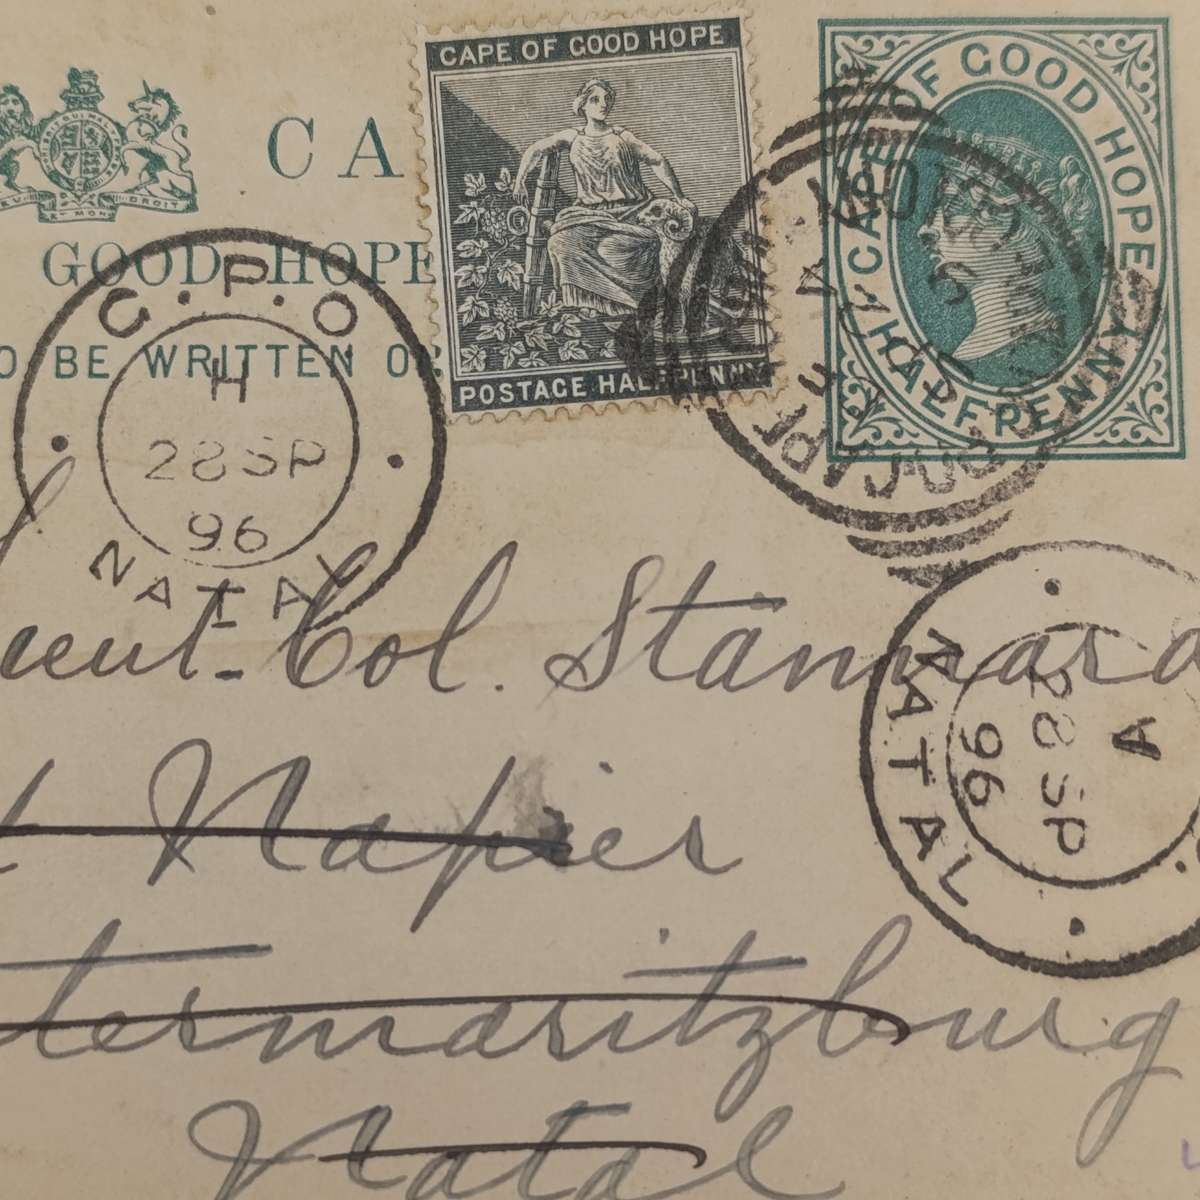 CAPE OF GOOD HOPE
POSTAGE HALFPENNY
CAPE OF GOOD HOPE
HALFPENNY
CA
GOOD HOPE
DROIT
O BE WRITTEN O
G.P.O
H
28 SP
96
NATAL
A
28 SP
96
NATAL
Col. Stannard
Napier
termaritzburg
Natal